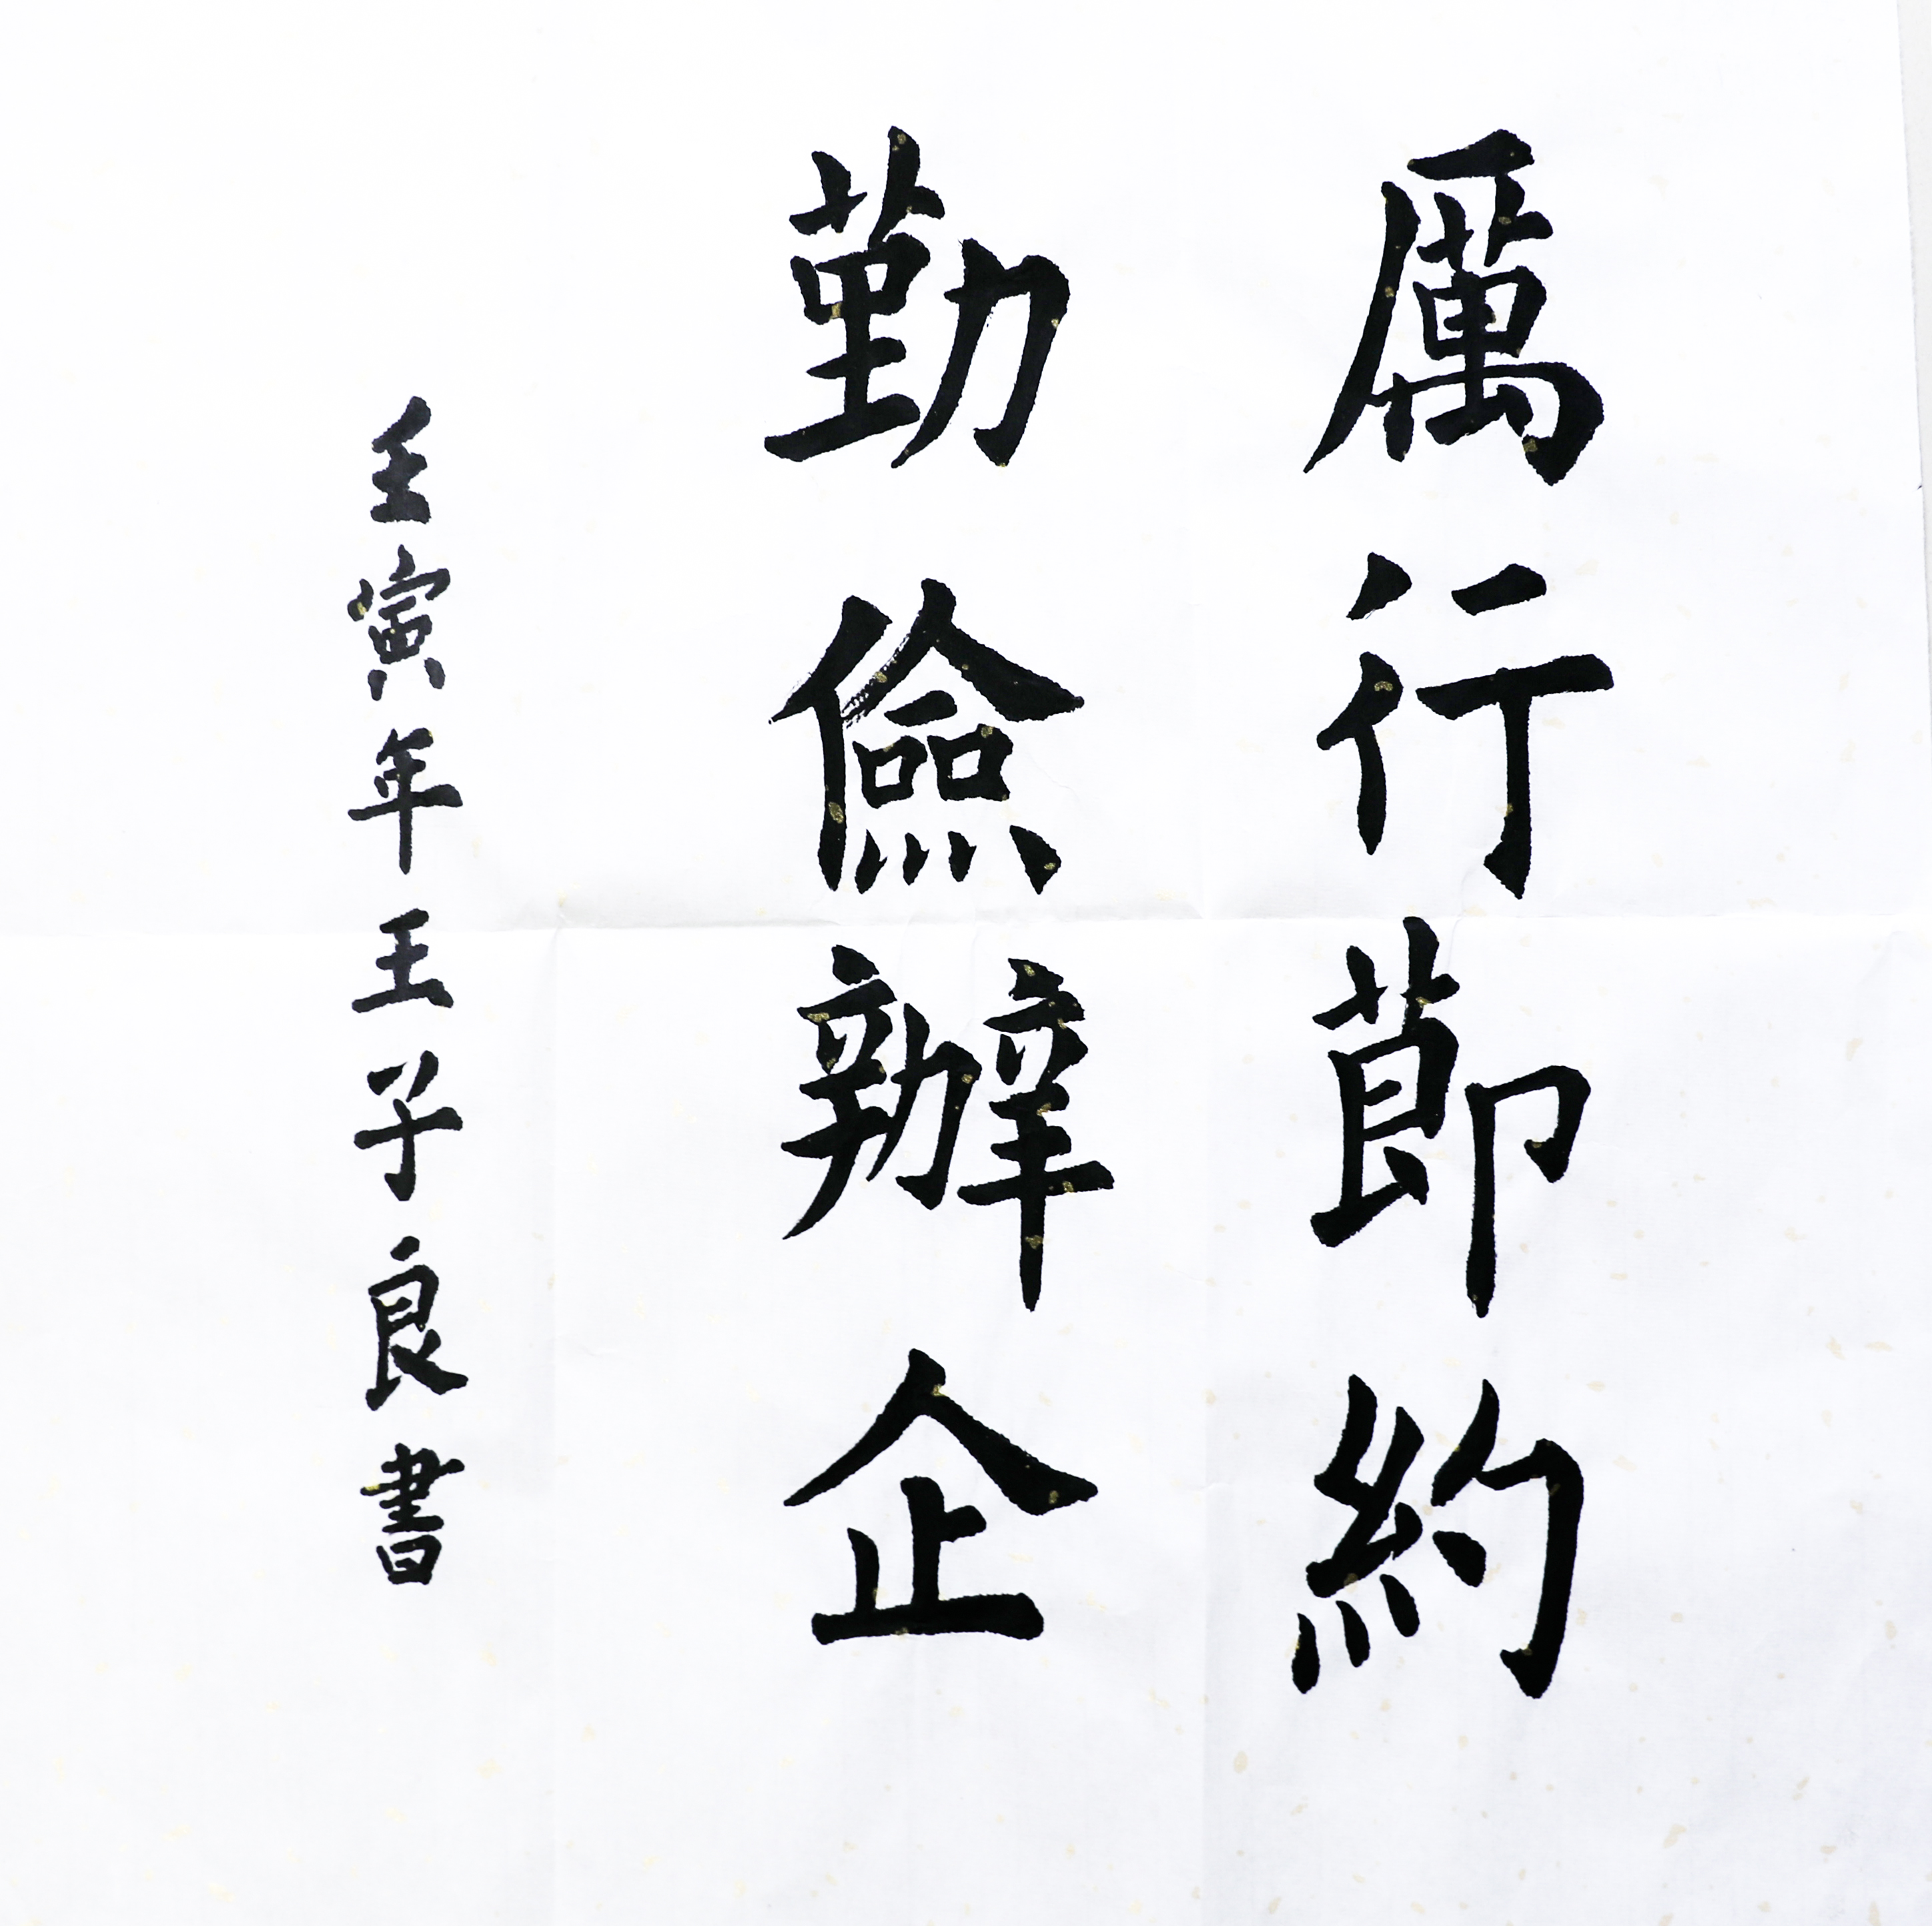 厲行節約
勤儉辦企
壬寅年王子良書